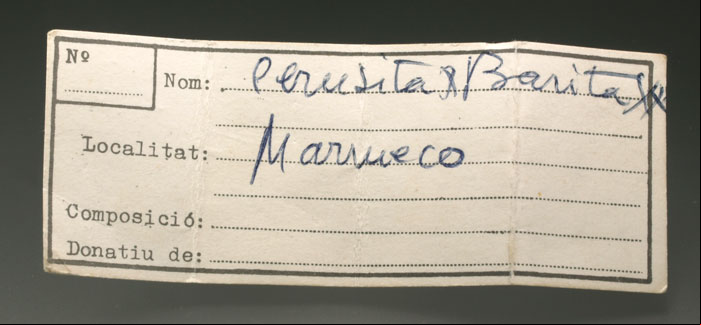 Nº
Nom: Cerusita x Barita xx
Localitat: Marrueco
Composició:
Donatiu de: